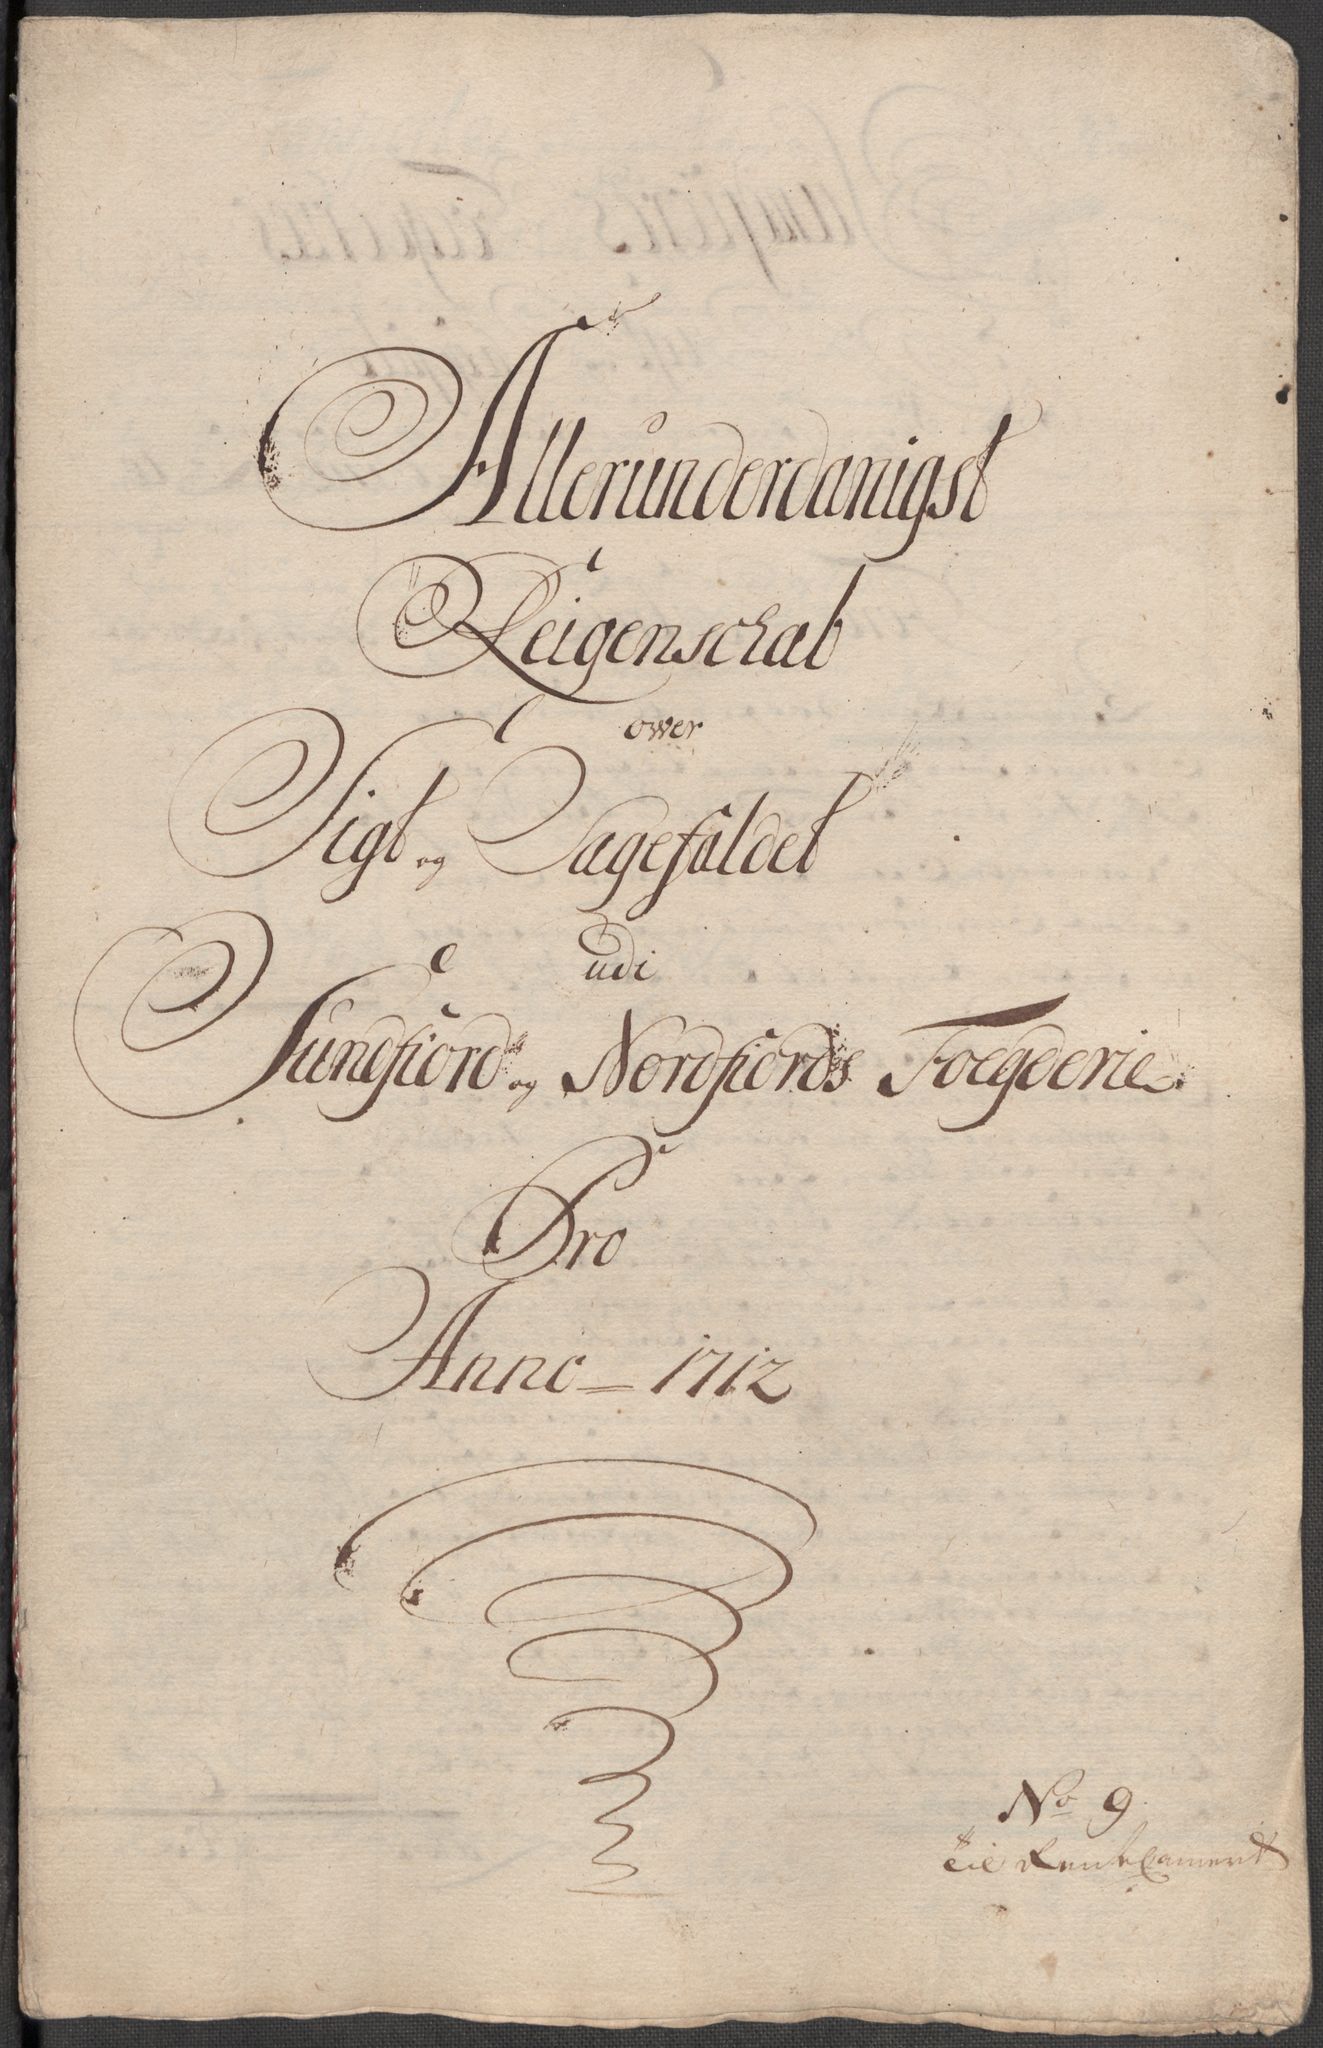 Allerunderdanigst
Reigenschab
over
Sigt og Sagefaldet
udi
Sundfiord og Nordfiords Foegderie
Pro
Anno - 1712
No 9.
til RenteCameret